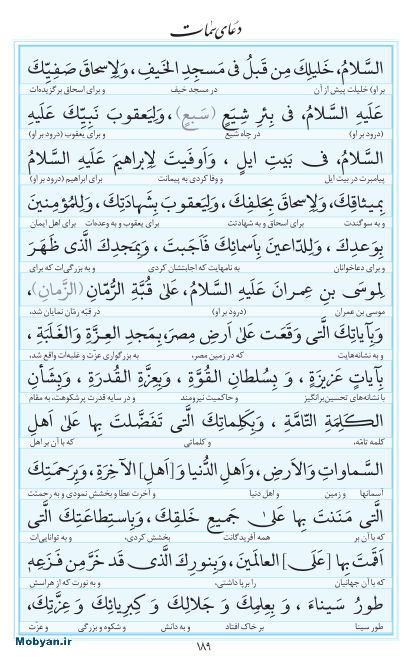 دعای سمات
السَّلامُ، خَلیلِكَ مِن قَبلُ فی مَسجِدِ الخَیفِ، وَلِإِسحاقَ صَفِیِّكَ
بر او) خلیلت پیش از آن در مسجد خیف و برای اسحاق برگزیده‌ات
عَلَیهِ السَّلامُ، فی بِئرِ شِیَعٍ (سَبِعٍ)، وَلِیَعقوبَ نَبِیِّكَ عَلَیهِ
(درود بر او) در چاه شیع و برای یعقوب (درود بر او)
السَّلامُ، فی بَیتِ ایلٍ، وَاَوفَیتَ لِاِبراهیمَ عَلَیهِ السَّلامُ
پیامبرت در بیت ایل و وفا کردی به پیمانت برای ابراهیم (درود بر او)
بِمیثاقِكَ، وَلِاِسحاقَ بِحَلفِكَ، وَلِیَعقوبَ بِشَهادَتِكَ، وَلِلمُؤمِنینَ
و به سوگندت برای اسحاق و به شهادتت برای یعقوب و به وعده‌ات برای اهل ایمان
بِوَعدِكَ، وَلِلدّاعینَ بِاَسمائِكَ فَاَجَبتَ، وَبِمَجدِكَ الَّذی ظَهَرَ
و برای دعاخوانان به نامهایت که اجابتشان کردی و به بزرگی‌ات که برای
لِموسَی بنِ عِمرانَ عَلَیهِ السَّلامُ، عَلیٰ قُبَّةِ الرُّمّانِ (الزَّمانِ)،
موسی بن عمران (درود بر او) در قبّه رمّان نمایان شد،
وَبِآیاتِكَ الَّتی وَقَعَت عَلیٰ اَرضِ مِصرَ، بِمَجدِ العِزَّةِ وَالغَلَبَةِ،
و به نشانه‌هایت که در زمین مصر، به بزرگواری عزّت و غلبه‌ات واقع شد،
بِآیاتٍ عَزیزَةٍ، وَ بِسُلطانِ القُوَّةِ، وَبِعِزَّةِ القُدرَةِ، وَبِشَأنِ
با نشانه‌های تحسین‌برانگیز و حاکمیت نیرومند و در سایه قدرت پرشکوهت، به مقام
الکَلِمَةِ التّامَّةِ، وَبِکَلِماتِكَ الَّتی تَفَضَّلتَ بِها عَلیٰ اَهلِ
کلمه تامّه، و کلماتی که با آن بر اهل
السَّماواتِ وَالاَرضِ، وَاَهلِ الدُّنیا وَ[اَهلِ] الآخِرَةِ، وَبِرَحمَتِكَ
آسمانها و زمین و اهل دنیا و آخرت عطا و بخشش نمودی و به رحمتت
الَّتی مَنَنتَ بِها عَلیٰ جَمیعِ خَلقِكَ، وَبِاستِطاعَتِكَ الَّتی
که با آن بر همه آفریدگانت بخشش کردی، و به توانایی‌ات
اَقَمتَ بِها [عَلَی] العالَمینَ، وَبِنورِكَ الَّذی قَد خَرَّ مِن فَزَعِهٖ
که با آن جهانیان را برپا داشتی، و به نورت که از هراسش
طورُ سَیناءَ، وَ بِعِلمِكَ وَ جَلالِكَ وَ کِبرِیائِكَ وَ عِزَّتِكَ،
طور سینا بر خاک افتاد و به دانش و شکوه و بزرگی و عزّت
۱۸۹
Mobyan.ir